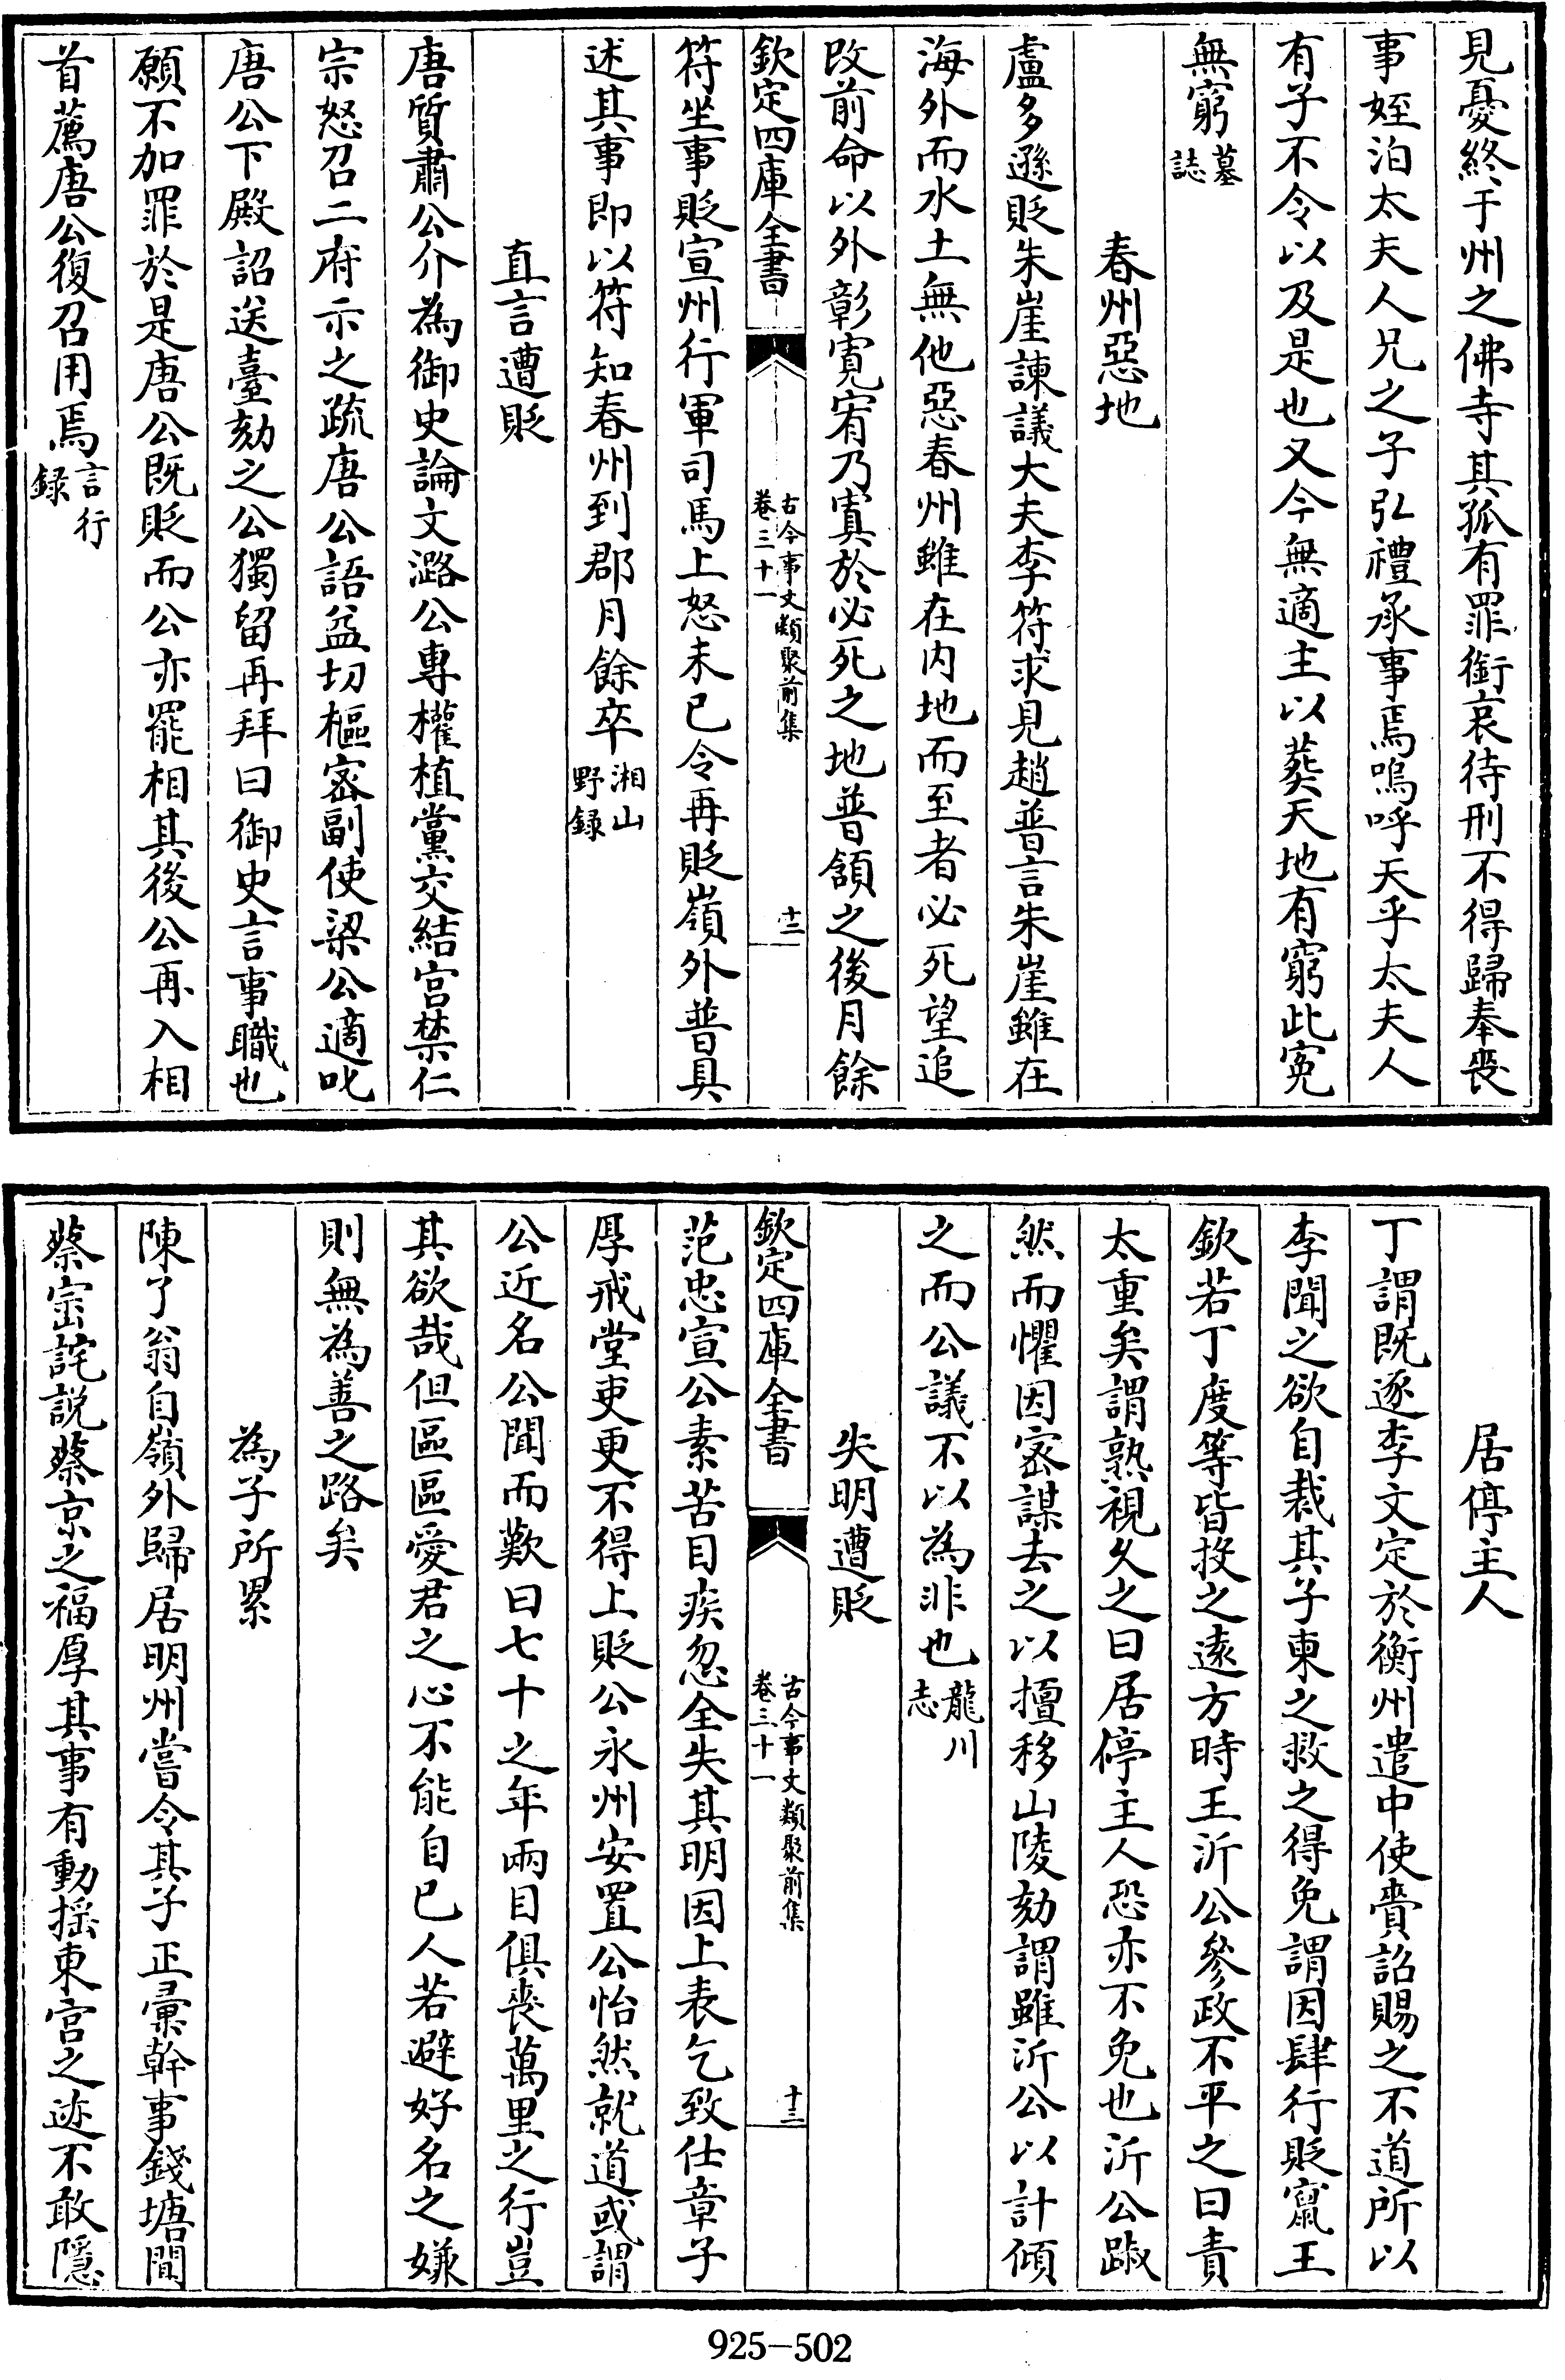 見憂終于州之佛寺其孤有罪銜哀待刑不得歸奉喪
事姪洎太夫人兄之子弘禮承事焉嗚呼天乎太夫人
有子不令以及是也又今無適主以葬天地有窮此寃
無窮墓誌
春州惡地
盧多遜貶朱崖諫議大夫李符求見趙普言朱崖雖在
海外而水土無他惡春州雖在内地而至者必死望追
改前命以外彰寛宥乃寘於必死之地普頷之後月餘
欽定四庫全書
古今事文類聚前集
卷三十一
十二
符坐事貶宣州行軍司馬上怒未已令再貶嶺外普具
述其事即以符知春州到郡月餘卒湘山野録
直言遭貶
唐質肅公介為御史論文潞公專權植黨交結宫禁仁
宗怒召二府示之疏唐公語益切樞宻副使梁公適叱
唐公下殿詔送臺劾之公獨留再拜曰御史言事職也
願不加罪於是唐公既貶而公亦罷相其後公再入相
首薦唐公復召用焉言行録
居停主人
丁謂既逐李文定於衡州遣中使賫詔賜之不道所以
李聞之欲自裁其子東之救之得免謂因肆行貶竄王
欽若丁度等皆投之逺方時王沂公參政不平之曰責
太重矣謂熟視久之曰居停主人恐亦不免也沂公踧
然而懼因宻謀去之以擅移山陵劾謂雖沂公以計傾
之而公議不以為非也龍川志
失明遭貶
欽定四庫全書
古今事文類聚前集
卷三十一
十三
范忠宣公素苦目疾忽全失其明因上表乞致仕章子
厚戒堂吏更不得上貶公永州安置公怡然就道或謂
公近名公聞而歎曰七十之年兩目俱喪萬里之行豈
其欲哉但區區愛君之心不能自已人若避好名之嫌
則無為善之路矣
為子所累
陳了翁自嶺外歸居明州嘗令其子正彚幹事錢塘聞
蔡崈詫説蔡京之福厚其事有動揺東宫之迹不敢隱
925-502